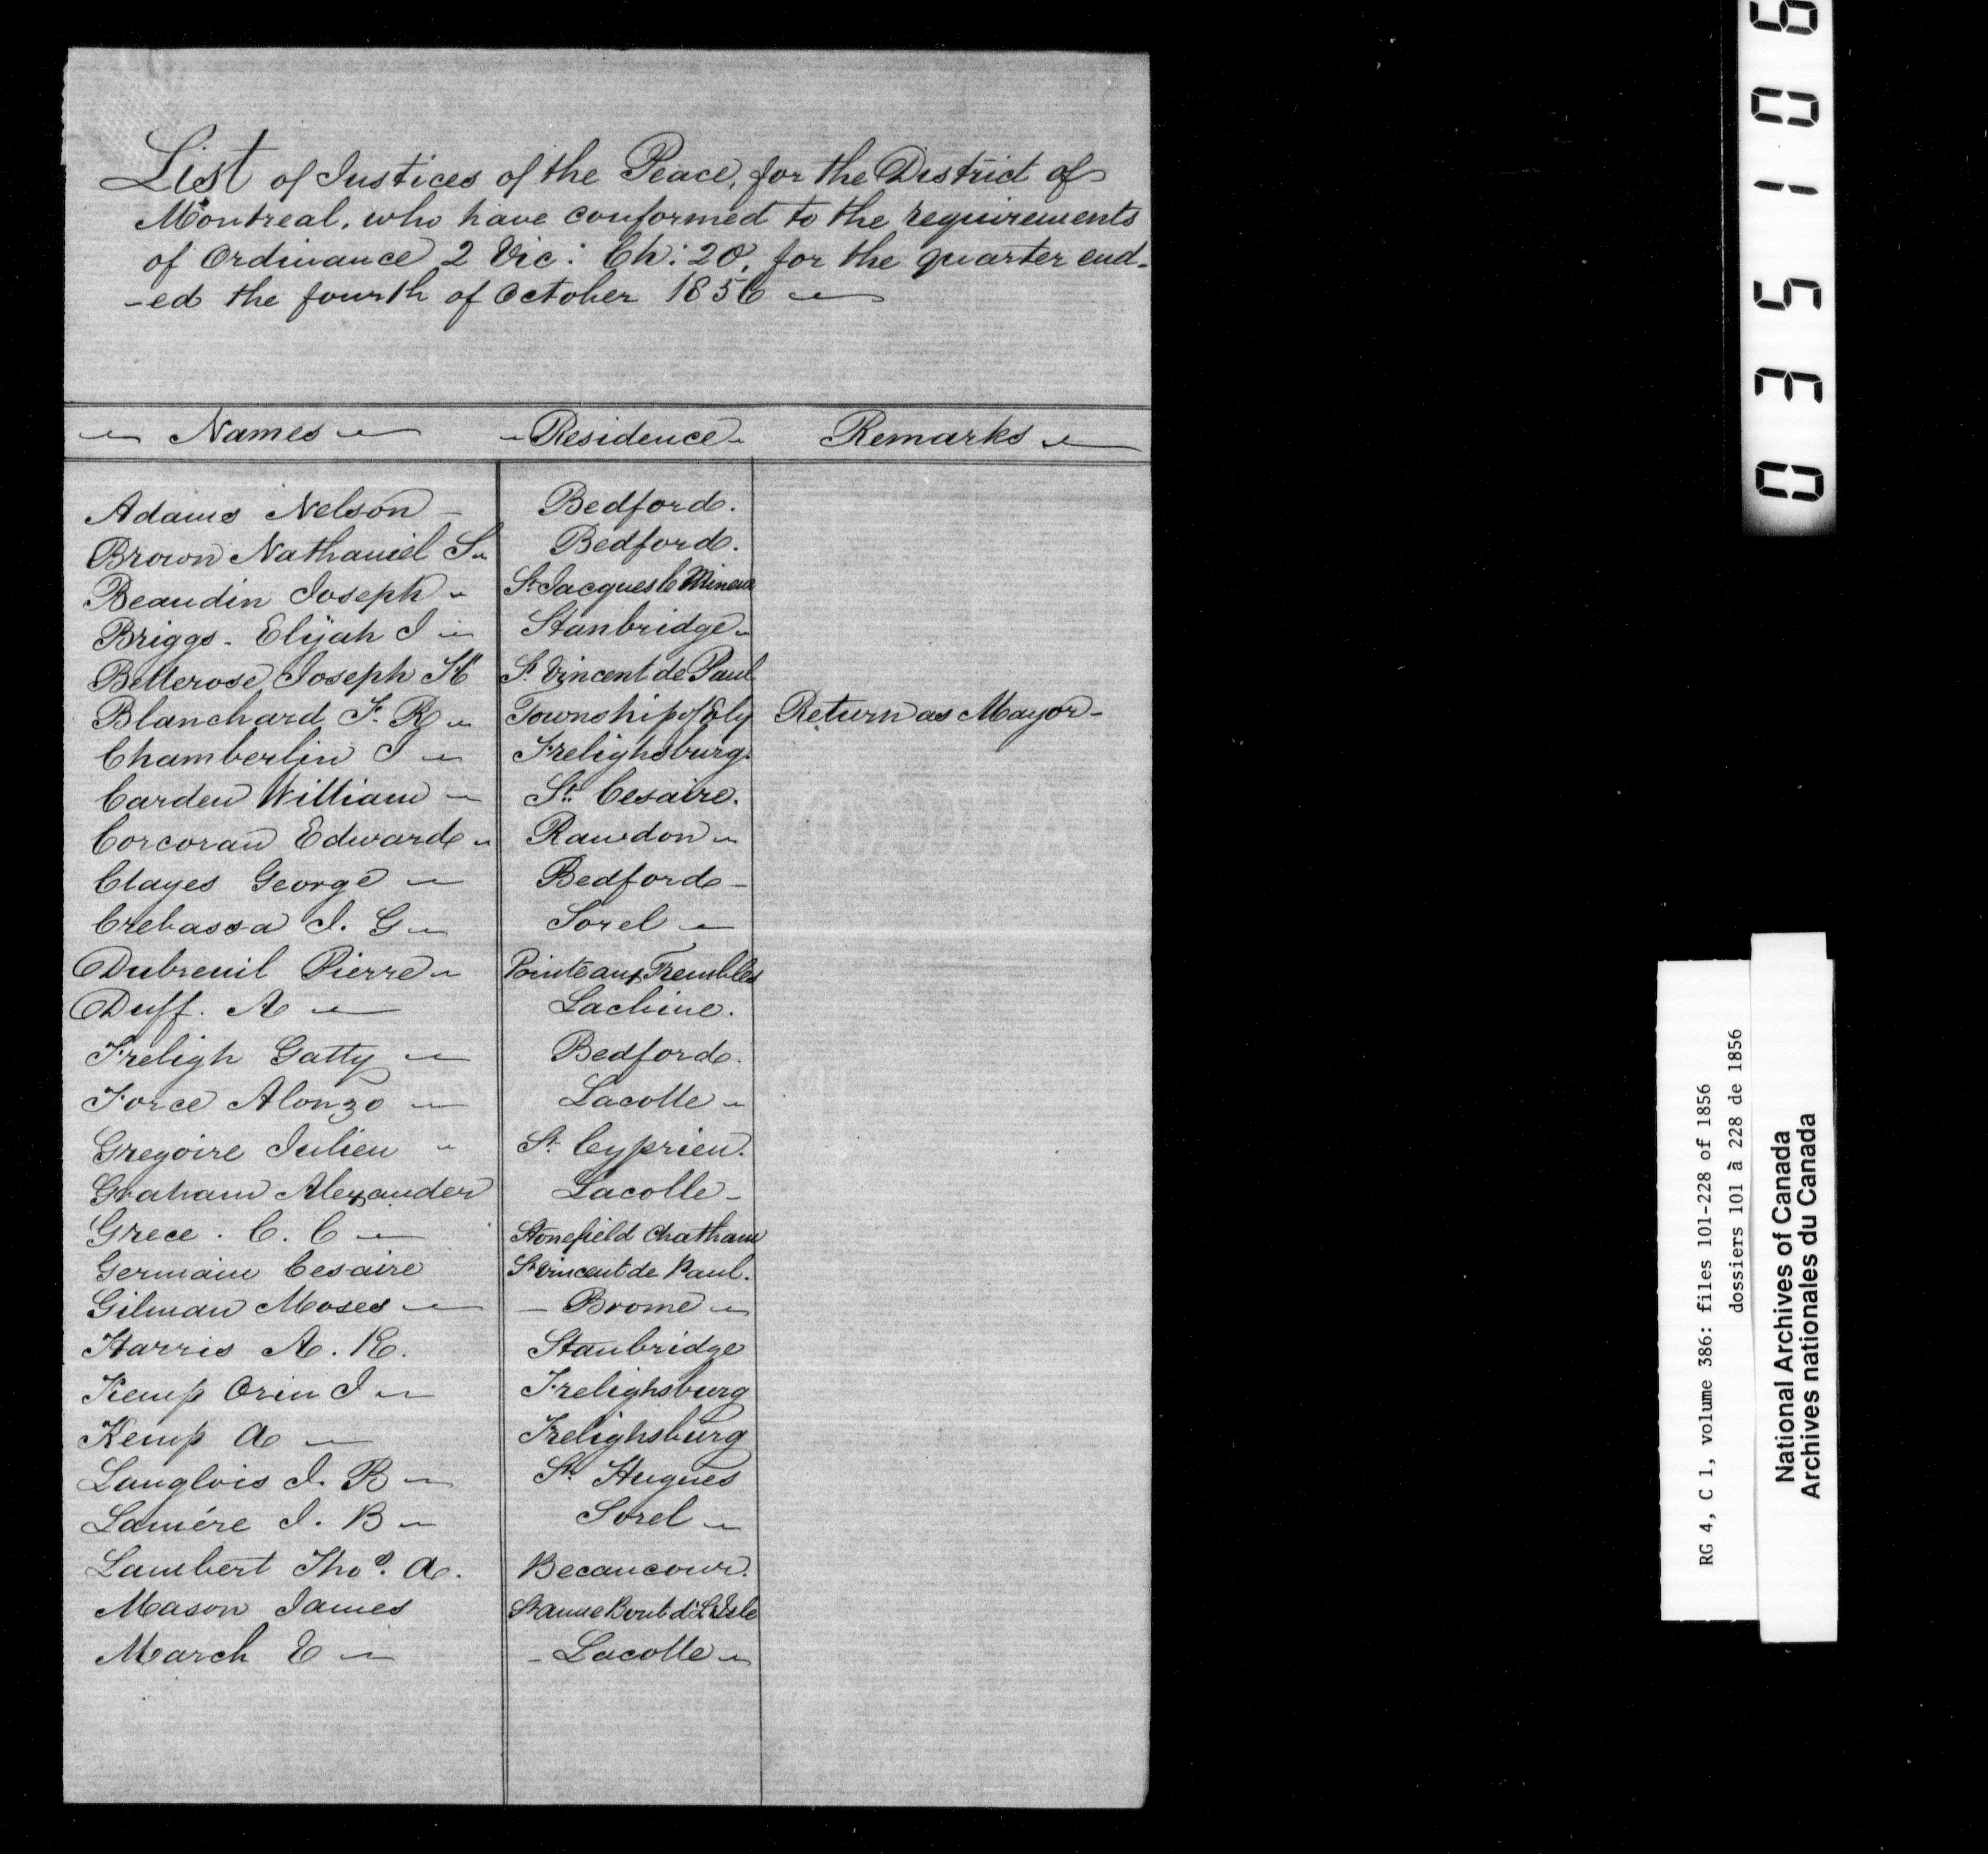 List of Justices of the Peace, for the District of
Montreal, who have conformed to the requirements
of Ordinance 2 Vic: Ch: 20, for the quarter end-
-ed the fourth of October 1856
Names Residence Remarks
Adams Nelson - Bedford.
Brown Nathaniel S. Bedford.
Beaudin Joseph St Jacques le Mineur
Briggs - Elijah J Stanbridge
Bellerose Joseph H St Vincent de Paul
Blanchard F. R Township of Ely Return as Mayor -
Chamberlin J Frelighsburg.
Carden William St. Cesaire.
Corcoran Edward Rawdon
Clayes George Bedford -
Crebassa J. G Sorel
Dubreuil Pierre Pointe aux Trembles
Duff. A Lachine.
Freligh Gatty Bedford.
Force Alonzo Lacolle
Gregoire Julien St Cyprien.
Graham Alexander Lacolle -
Grece. C. C Stonefield Chatham
Germain Cesaire St Vincent de Paul.
Gilman Moses - Brome
Harris A. K. Stanbridge
Kemp Orin J Frelighsburg
Kemp A Frelighsburg
Langlois J. B St. Hugues
Lamére J. B Sorel
Lambert Thos. A. Becancour.
Mason James St Anne Bout d'L'Isle
March E - Lacolle
0 3 5 1 0 6
RG 4, C 1, volume 386: files 101-228 of 1856
dossiers 101 à 228 de 1856
National Archives of Canada
Archives nationales du Canada